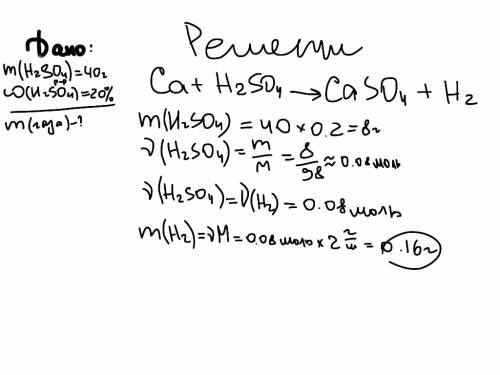 Дано:
m(H₂SO₄)=40г
р-р
ω(H₂SO₄)=20%
m(газа)-?
Решени
Ca + H₂SO₄ → CaSO₄ + H₂
m(H₂SO₄) = 40 × 0.2 = 8г
ν(H₂SO₄) = m/M = 8/98 ≈ 0.08 моль
ν(H₂SO₄) = ν(H₂) = 0.08 моль
m(H₂) = νM = 0.08 моль × 2 г/м = 0.16г